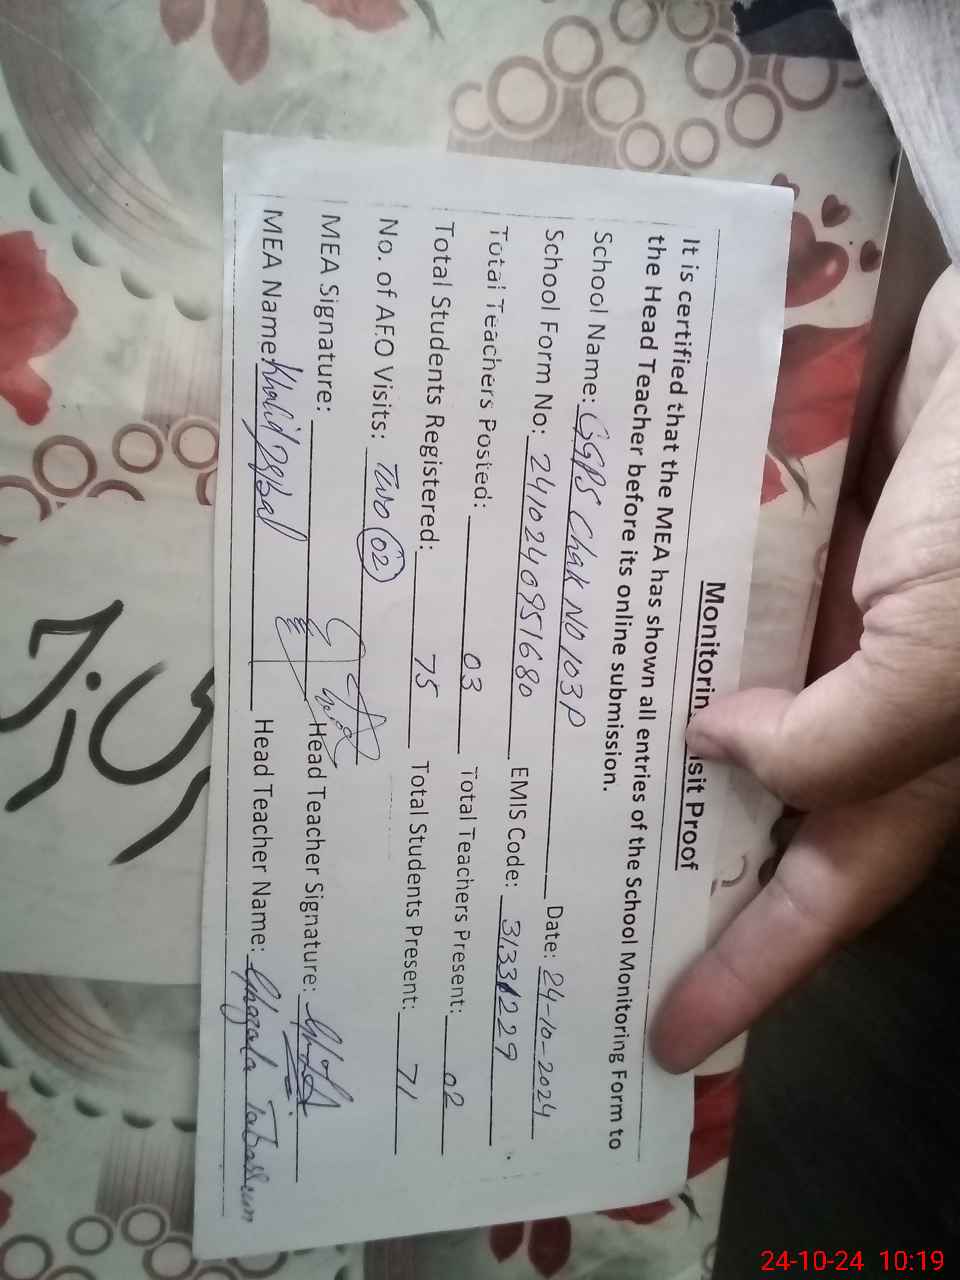 Monitorin isit Proof
It is certified that the MEA has shown all entries of the School Monitoring Form to
the Head Teacher before its online submission.
School Name: GGPS Chak NO 103 P Date: 24-10-2024
School Form No: 2410240951680 EMIS Code: 31331229
Total Teachers Posted: 03 Total Teachers Present: 02
Total Students Registered: 75 Total Students Present: 71
No. of AEO Visits: Two 02
MEA Signature: Head Teacher Signature:
MEA Name: Khalid Iqbal Head Teacher Name: Ghazala Tabassum
24-10-24 10:19